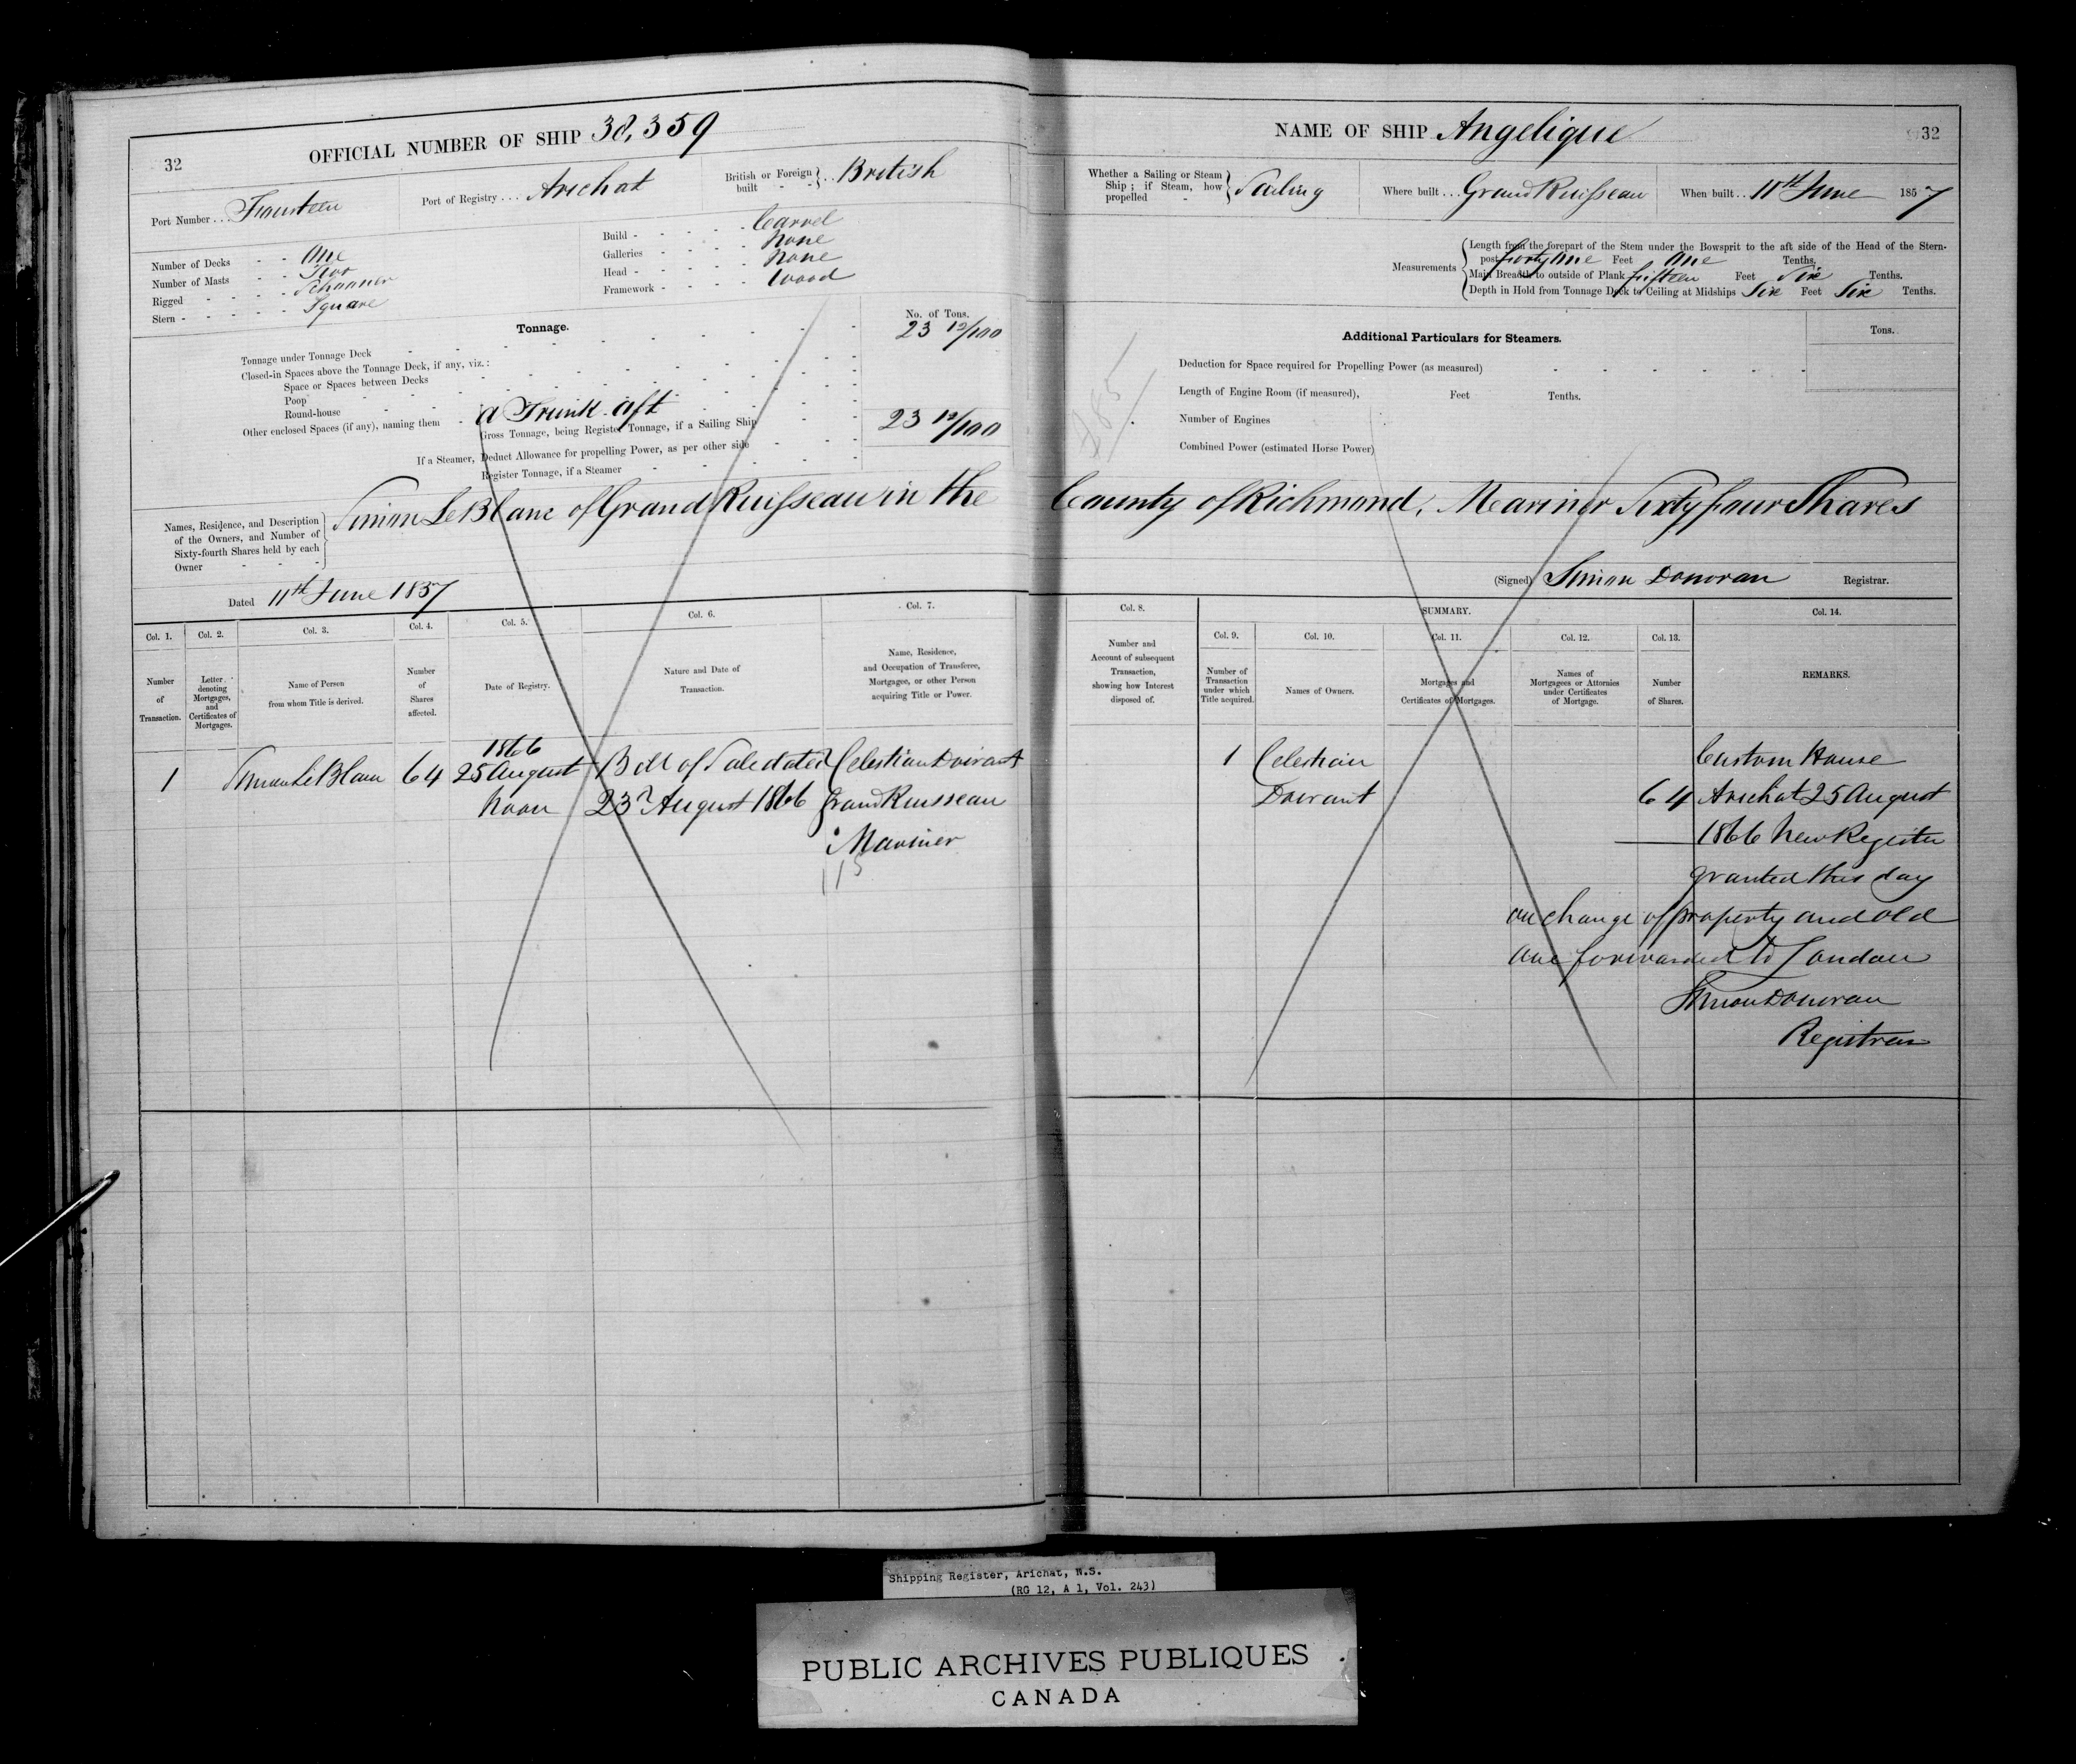 32
OFFICIAL NUMBER OF SHIP 38,359
Port Number . . . Fourteen
Port of Registry . . . Arichat
British or Foreign built - - } . . British
Number of Decks - - One
Number of Masts - - Two
Rigged - - - - Schooner
Stern - - - - - Square
Build - - - - - Carvel
Galleries - - - - None
Head - - - - - None
Framework - - - - Wood
Tonnage.
No. of Tons.
Tonnage under Tonnage Deck 23 12/100
Closed-in Spaces above the Tonnage Deck, if any, viz.:
Space or Spaces between Decks
Poop
Round-house
Other enclosed Spaces (if any), naming them - a Trunk aft
Gross Tonnage, being Register Tonnage, if a Sailing Ship 23 12/100
If a Steamer, Deduct Allowance for propelling Power, as per other side
Register Tonnage, if a Steamer
NAME OF SHIP Angelique
32
Whether a Sailing or Steam Ship; if Steam, how propelled - } Sailing
Where built . . . Grand Ruisseau
When built . . 11th June 1857
Measurements
Length from the forepart of the Stem under the Bowsprit to the aft side of the Head of the Stern-
post forty one Feet One Tenths.
Main Breadth to outside of Plank fifteen Feet Six Tenths.
Depth in Hold from Tonnage Deck to Ceiling at Midships Six Feet Six Tenths.
Additional Particulars for Steamers.
Tons.
Deduction for Space required for Propelling Power (as measured)
Length of Engine Room (if measured), Feet Tenths.
Number of Engines
Combined Power (estimated Horse Power)
Names, Residence, and Description
of the Owners, and Number of
Sixty-fourth Shares held by each
Owner - - -
Simon LeBlanc of Grand Ruisseau in the County of Richmond, Mariner Sixty four Shares
Dated 11th June 1857
(Signed) Simon Donovan Registrar.
Col. 1.
Number
of
Transaction.
Col. 2.
Letter
denoting
Mortgages,
and
Certificates of
Mortgages.
Col. 3.
Name of Person
from whom Title is derived.
Col. 4.
Number
of
Shares
affected.
Col. 5.
Date of Registry.
Col. 6.
Nature and Date of
Transaction.
Col. 7.
Name, Residence,
and Occupation of Transferee,
Mortgagee, or other Person
acquiring Title or Power.
Col. 8.
Number and
Account of subsequent
Transaction,
showing how Interest
disposed of.
SUMMARY.
Col. 9.
Number of
Transaction
under which
Title acquired.
Col. 10.
Names of Owners.
Col. 11.
Mortgages and
Certificates of Mortgages.
Col. 12.
Names of
Mortgagees or Attornies
under Certificates
of Mortgage.
Col. 13.
Number
of Shares.
Col. 14.
REMARKS.
1
Simon LeBlanc
64
1866
25 August
Noon
Bill of Sale dated
23rd August 1866
Celestian Doirant
Grand Ruisseau
Mariner
115
1
Celestian
Doirant
64
Custom House
Arichat 25 August
1866 New Register
granted this day
on change of property and old
one forwarded to London
Simon Donovan
Registrar
Shipping Register, Arichat, N.S.
(RG 12, A 1, Vol. 243)
PUBLIC ARCHIVES PUBLIQUES
CANADA